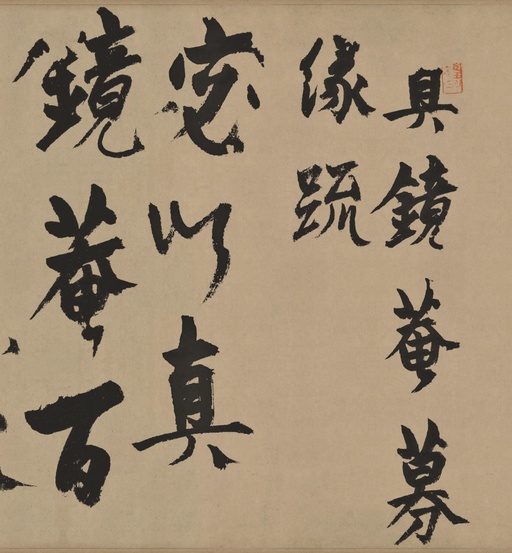 真鏡菴募
緣疏
以真
鏡菴百